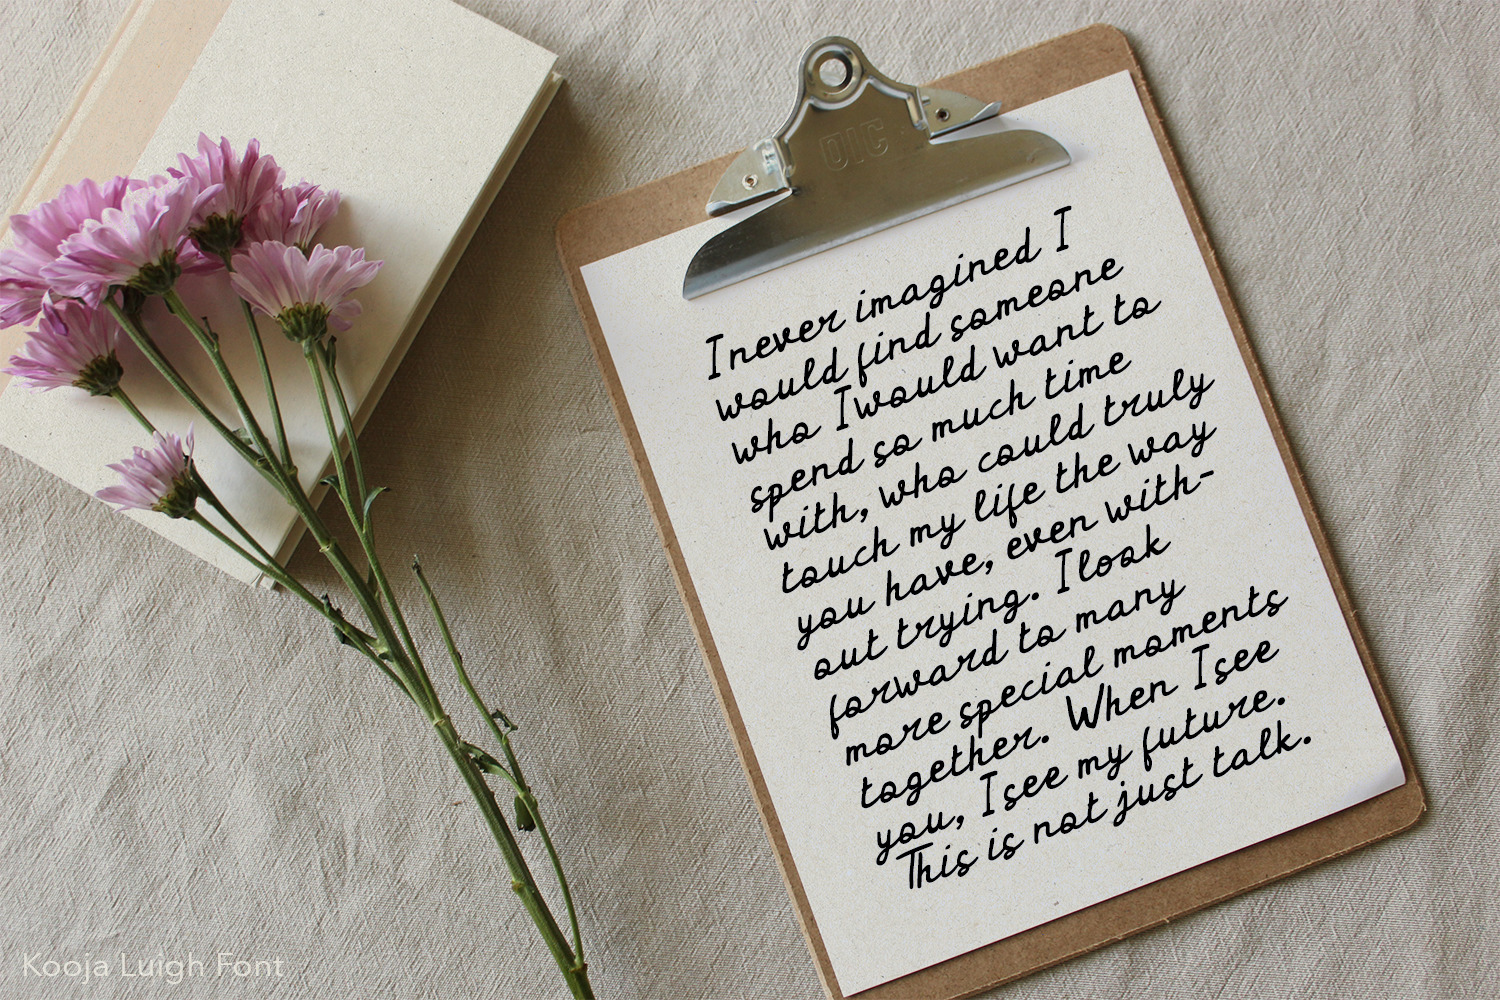 OIC
I never imagined I
would find someone
who I would want to
spend so much time
with, who could truly
touch my life the way
you have, even with-
out trying. I look
forward to many
more special moments
together. When I see
you, I see my future.
This is not just talk.
Kooja Luigh Font